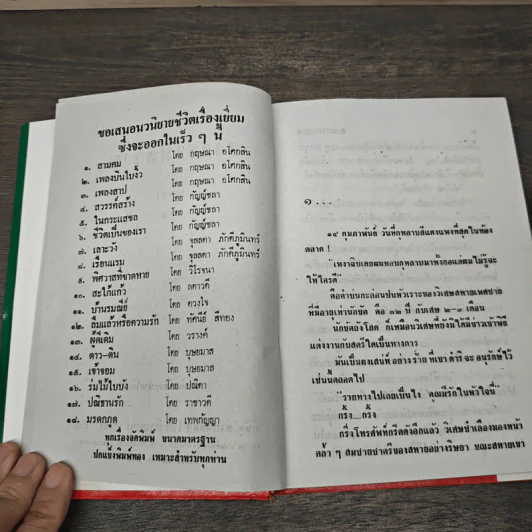 ขอเสนอนวนิยายชีวิตเรื่องเยี่ยม
ซึ่งจะออกในเร็ว ๆ นี้
๑. สามคม โดย กฤษณา อโศกสิน
๒. เพลงบินใบงิ้ว โดย กฤษณา อโศกสิน
๓. เพลงสาป โดย กฤษณา อโศกสิน
๔. สวรรค์สร้าง โดย กัญญ์ชลา
๕. ในกระแสชล โดย กัญญ์ชลา
๖. ชีวิตเป็นของเรา โดย กัญญ์ชลา
๗. เลาะวัง โดย จุลลดา ภักดีภูมินทร์
๘. เรือนแรม โดย จุลลดา ภักดีภูมินทร์
๙. พิศวาสที่ขาดหาย โดย วิโรจนา
๑๐. สะใภ้แก้ว โดย ลดาวดี
๑๑. บ้านรมณีย์ โดย ดวงใจ
๑๒. ลืมแล้วหรือความรัก โดย ทัศนีย์ สีทอง
๑๓. ผู้ดีเดิม โดย วรางค์
๑๔. ดาว-ดิน โดย บุษยมาส
๑๕. เจ้าจอม โดย บุษยมาส
๑๖. ร่มไม้ใบบัง โดย ปณิตา
๑๗. ปณิธานรัก โดย ราชาวดี
๑๘. มรดกภูต โดย เทพกัญญา
ทุกเรื่องจัดพิมพ์ ขนาดมาตรฐาน
ปกแข็งพิมพ์ทอง เหมาะสำหรับทุกท่าน
๑ ...
๑๔ กุมภาพันธ์ วันที่กุหลาบสีแดงแพงที่สุดในท้อง
ตลาด !
"เหงาฉิบเลยผมหอบกุหลาบมาทั้งกอแต่ผมไม่รู้จะ
ให้ใครดี"
คือคำบ่นกะอ่อนปนหัวเราะของวิเศษสหายเพศชาย
ที่มีอายุเท่ากันขัด คือ ๓๒ ปี กับเศษ ๒-๓ เดือน
แต่งงานกับสตรีใดเป็นทางการ
เช่นนี้ตลอดไป
"รายทางไปเลยเป็นไง คุณมีรักในหัวใจนี่"
กริ๊ง....กริ๊ง
กริ่งโทรศัพท์กรีดดังอีกแล้ว วิเศษชำเลืองมองหน้า
คล้ำ ๆ สมชายชาตรีของสหายอย่างริษยา ขณะสหายเขา